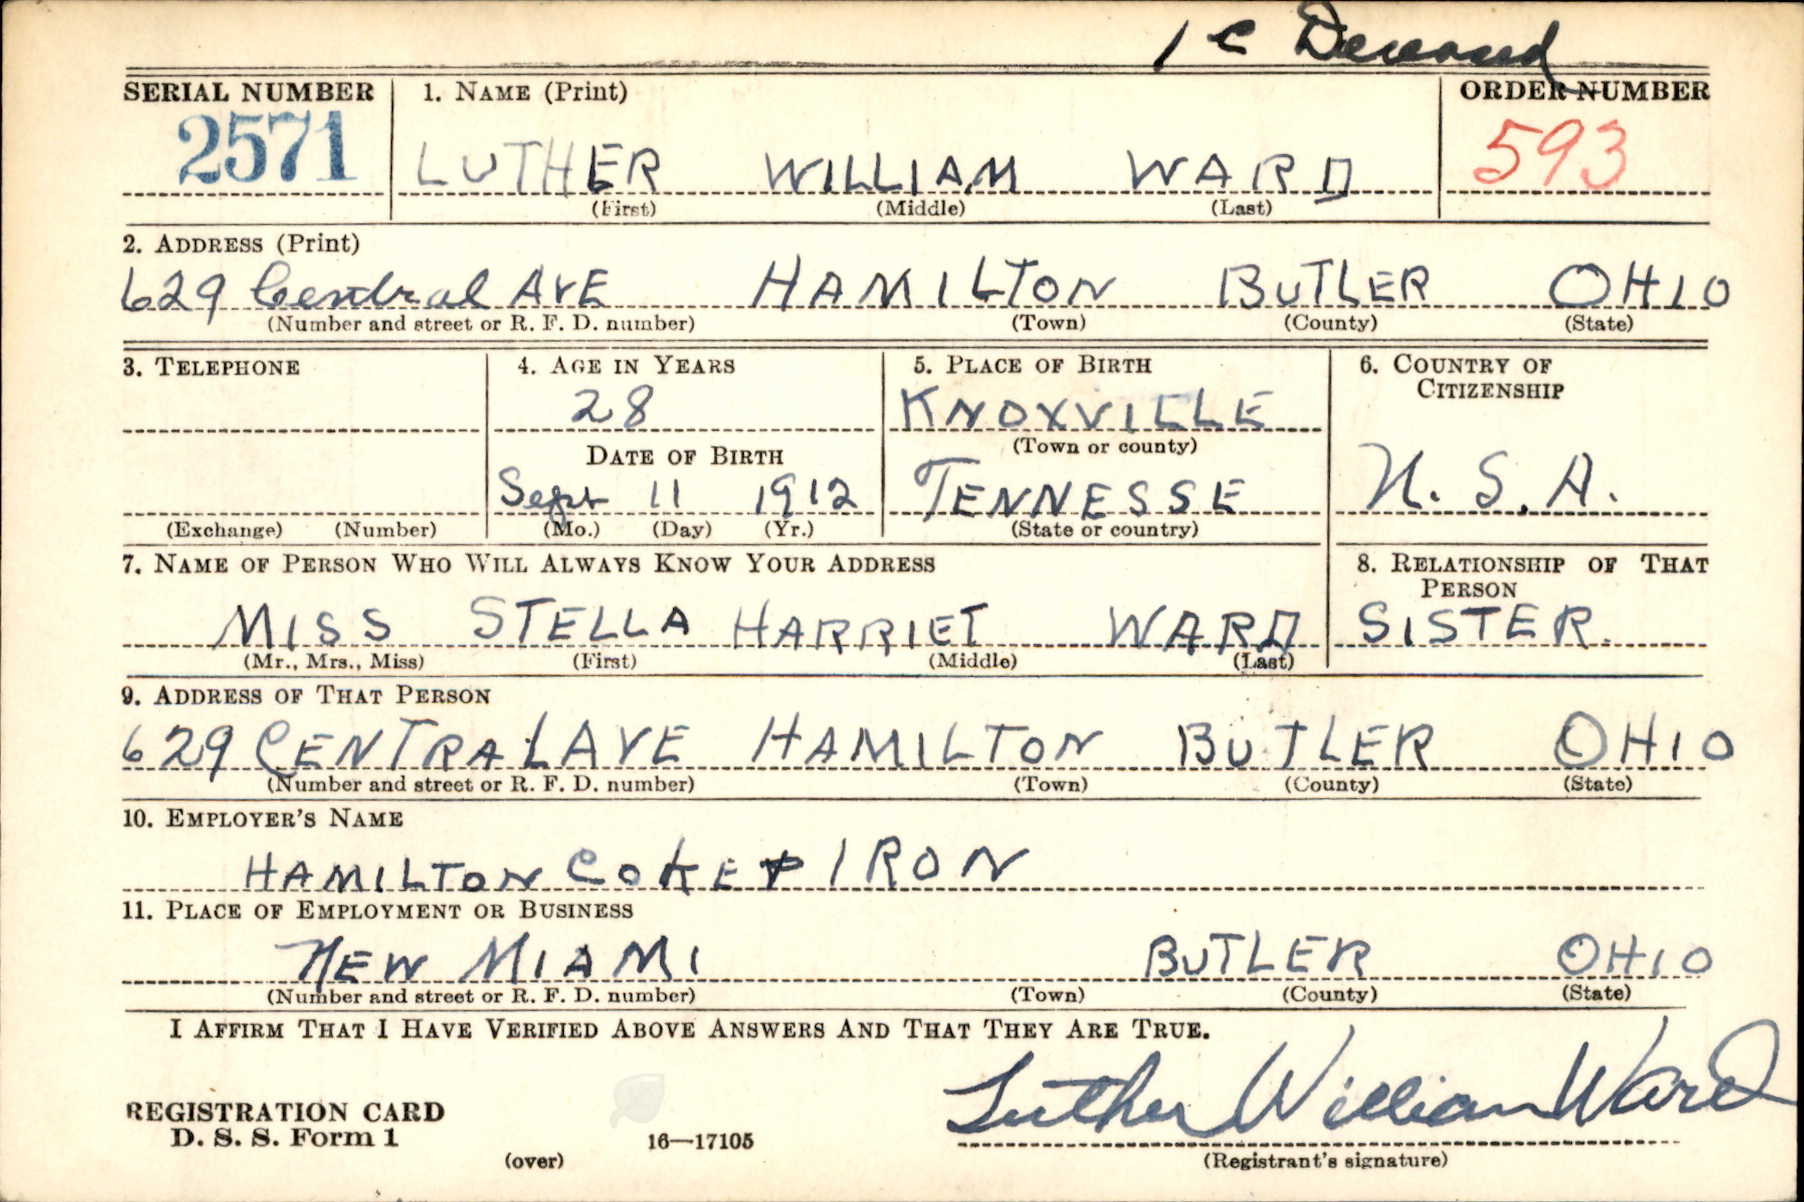 1 C Deceased
SERIAL NUMBER 1. NAME (Print) ORDER NUMBER
2571 LUTHER WILLIAM WARD 593
(First) (Middle) (Last)
2. ADDRESS (Print)
629 Central AVE HAMILTON BUTLER OHIO
(Number and street or R. F. D. number) (Town) (County) (State)
3. TELEPHONE 4. AGE IN YEARS 5. PLACE OF BIRTH 6. COUNTRY OF
CITIZENSHIP
28 KNOXVILLE
DATE OF BIRTH (Town or county)
Sept 11 1912 TENNESSE U. S. A.
(Exchange) (Number) (Mo.) (Day) (Yr.) (State or country)
7. NAME OF PERSON WHO WILL ALWAYS KNOW YOUR ADDRESS 8. RELATIONSHIP OF THAT
PERSON
MISS STELLA HARRIET WARD SISTER.
(Mr., Mrs., Miss) (First) (Middle) (Last)
9. ADDRESS OF THAT PERSON
629 CENTRAL AVE HAMILTON BUTLER OHIO
(Number and street or R. F. D. number) (Town) (County) (State)
10. EMPLOYER'S NAME
HAMILTON COKE & IRON
11. PLACE OF EMPLOYMENT OR BUSINESS
NEW MIAMI BUTLER OHIO
(Number and street or R. F. D. number) (Town) (County) (State)
I AFFIRM THAT I HAVE VERIFIED ABOVE ANSWERS AND THAT THEY ARE TRUE.
Luther William Ward
REGISTRATION CARD
D. S. S. Form 1 16—17105
(over) (Registrant's signature)